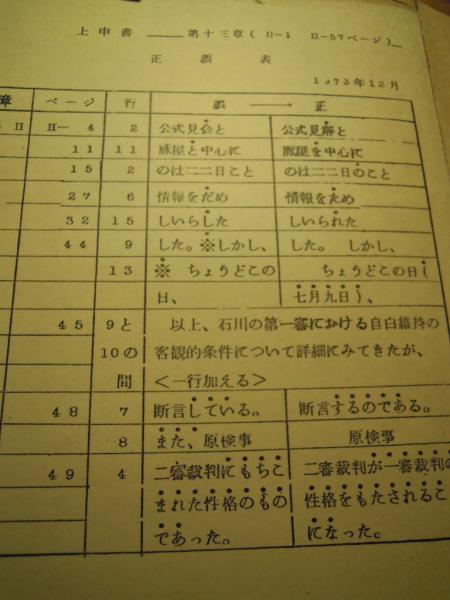 上申書 ＿＿ 第十三章（Ⅱ－1 Ⅱ－57ページ）
正誤表
1973年12月
章 ページ 行 誤 ─→ 正
Ⅱ Ⅱ－4 2 公式見会と 公式見解と
11 11 豚屋と中心に 豚屋を中心に
15 2 のは二二日こと のは二二日のこと
27 6 情報をだめ 情報をため
32 15 しいらした しいられた
44 9 した。※しかし、 した。 しかし、
13 ※ ちょうどこの ちょうどこの日（
日、 七月九日）、
45 9と 以上、石川の第一審における自白維持の
10の 客観的条件について詳細にみてきたが、
間 ＜一行加える＞
48 7 断言している。 断言するのである。
8 また、原検事 原検事
49 4 二審裁判にもちこ 二審裁判が一審裁判の
まれた性格のもの 性格をもたされるこ
であった。 になった。